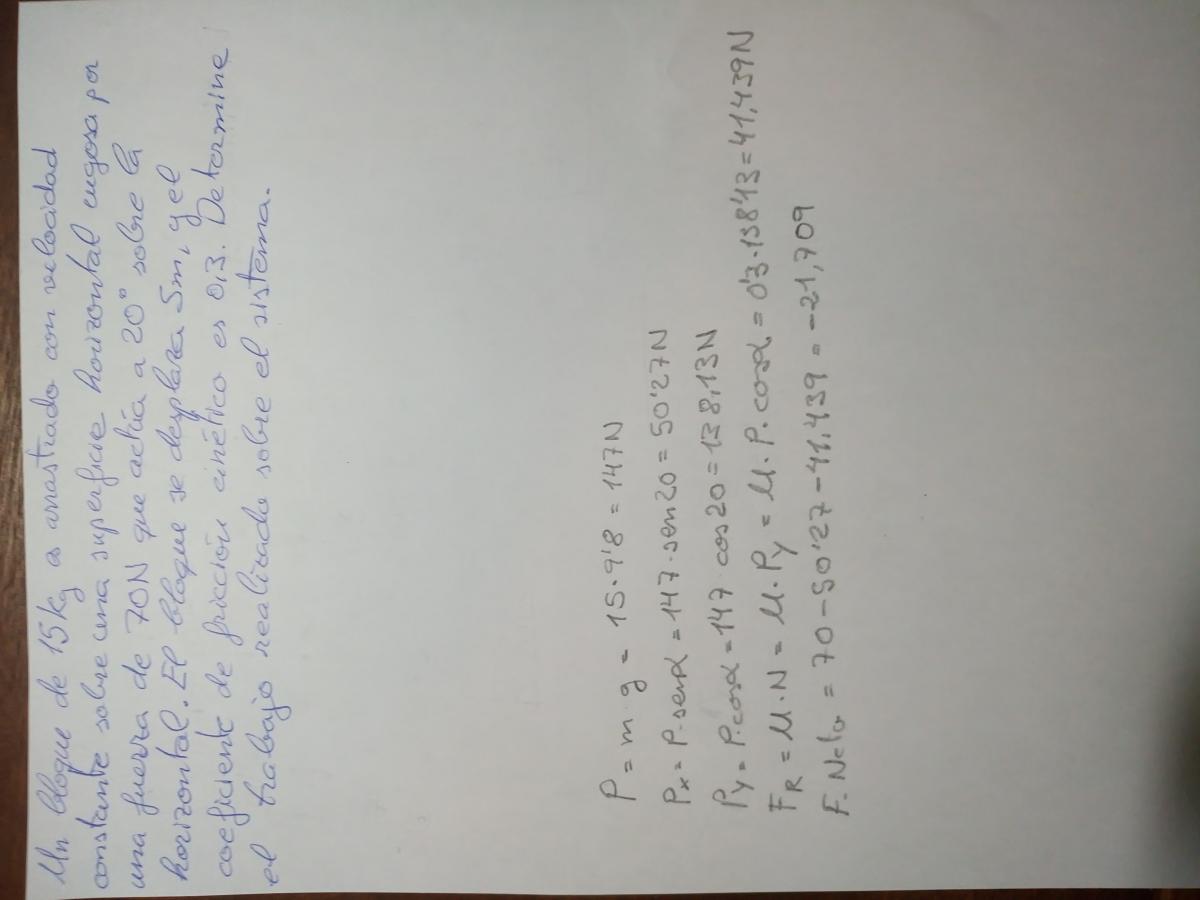 Un bloque de 15kg es arrastrado con velocidad
constante sobre una superficie horizontal rugosa por
una fuerza de 70N que actúa a 20° sobre la
horizontal. El bloque se desplaza 5m, y el
coeficiente de fricción cinético es 0,3. Determine
el trabajo realizado sobre el sistema.
P = m·g = 15·9'8 = 147N
Px = P·senα = 147·sen20 = 50'27N
Py = P·cosα = 147·cos20 = 138,13N
FR = μ·N = μ·Py = μ·P·cosα = 0'3·138'13 = 41,439N
F.Neta = 70-50'27-41,439 = -21,709